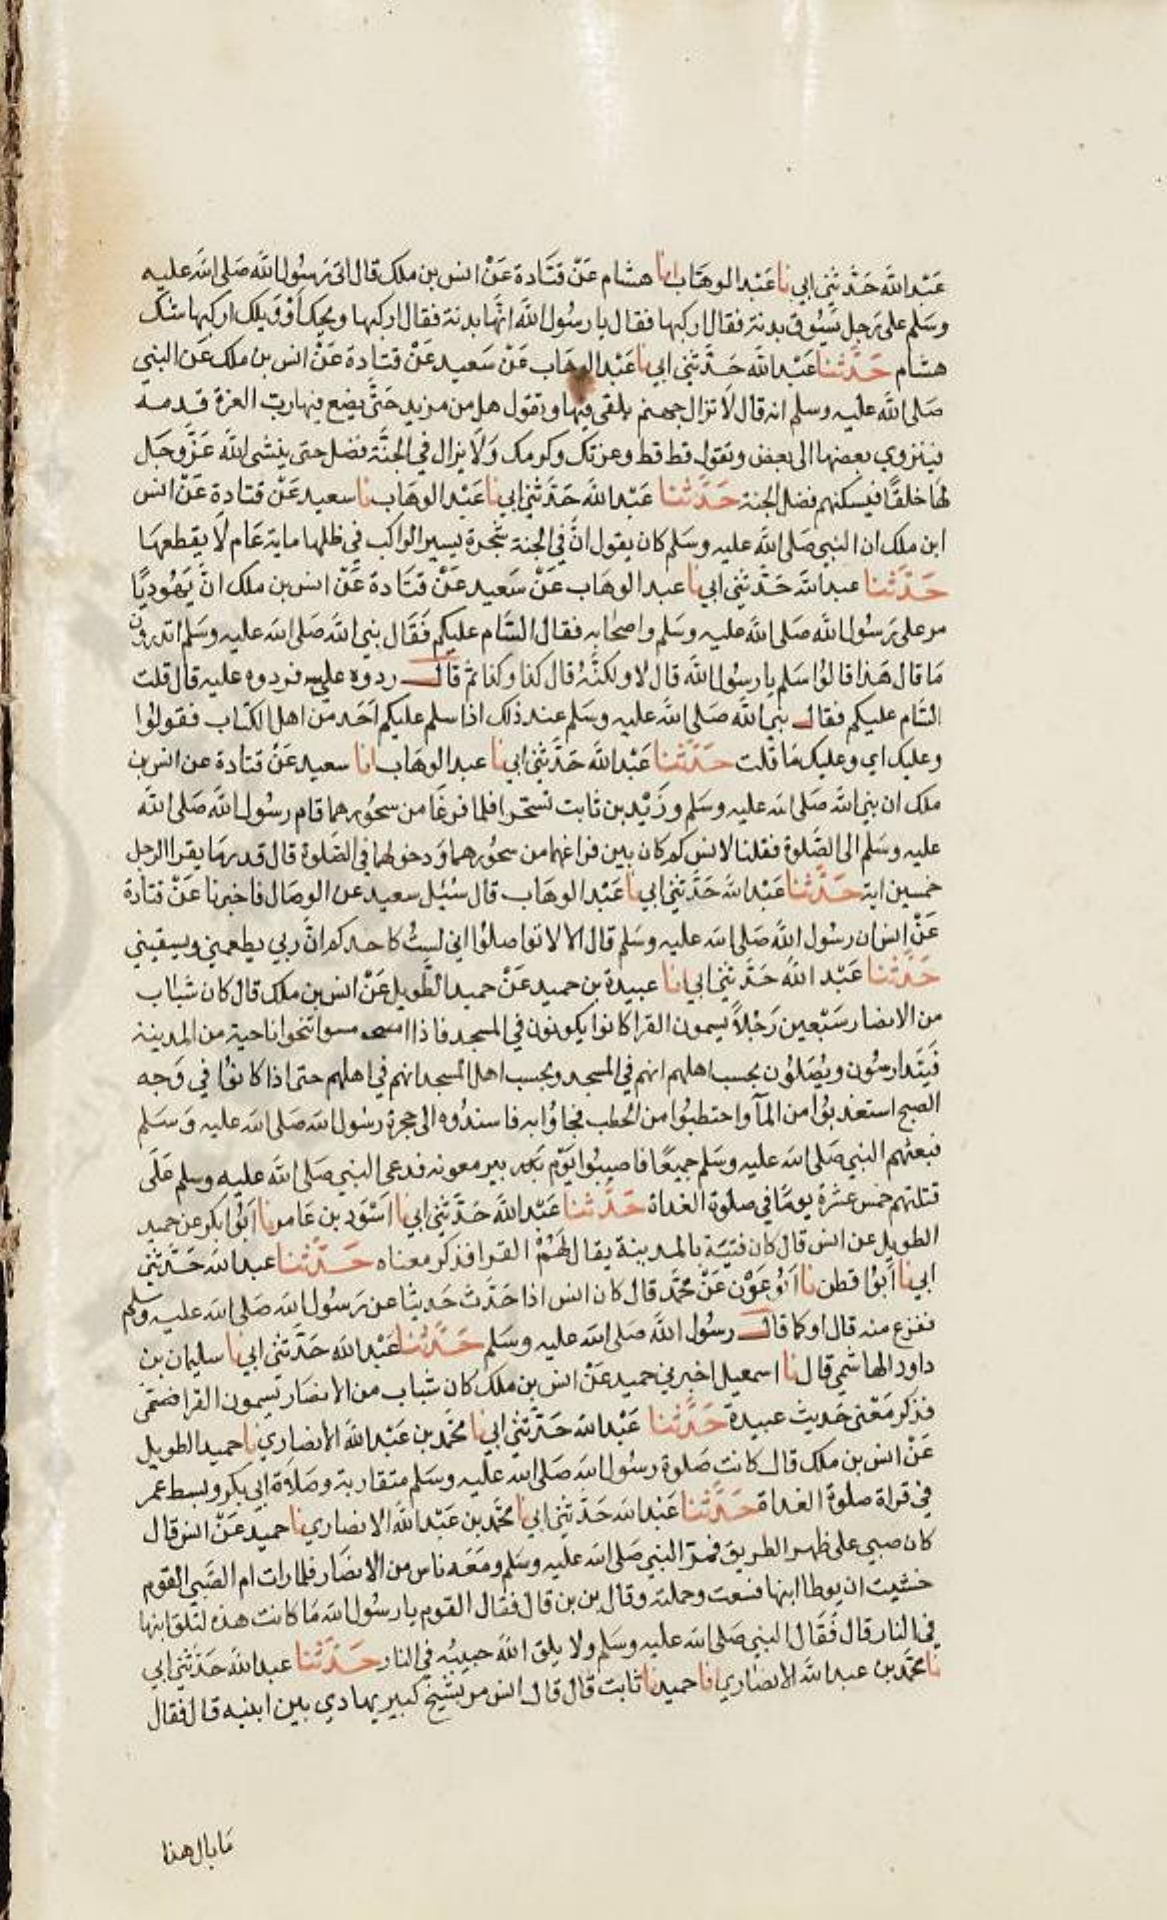 عبد الله حدثني ابي نا عبد الوهاب انا هشام عن قتادة عن انس بن ملك قال اتى رسول الله صلى الله عليه
وسلم على رجل يسوق بدنة فقال اركبها فقال يا رسول الله انها بدنة فقال اركبها ويحك او ويلك اركبها شك
هشام حدثنا عبد الله حدثني ابي نا عبد الوهاب عن سعيد عن قتادة عن انس بن ملك عن النبي
صلى الله عليه وسلم انه قال لا تزال جهنم يلقى فيها وتقول هل من مزيد حتى يضع فيها رب العزة قدمه
فينزوي بعضها الى بعض وتقول قط قط وعزتك وكرمك ولا يزال في الجنة فضل حتى ينشى الله عز وجل
لها خلقا فيسكنهم فضل الجنة حدثنا عبد الله حدثني ابي نا عبد الوهاب نا سعيد عن قتادة عن انس
ابن ملك ان النبي صلى الله عليه وسلم كان يقول ان في الجنة شجرة يسير الراكب في ظلها ماية عام لا يقطعها
حدثنا عبد الله حدثني ابي نا عبد الوهاب عن سعيد عن قتادة عن انس بن ملك ان يهوديا
مر على رسول الله صلى الله عليه وسلم واصحابه فقال السام عليكم فقال نبي الله صلى الله عليه وسلم اتدرون
ما قال هذا قالوا سلم يا رسول الله قال لا ولكنه قال كذا وكذا ثم قال ردوه علي فردوه عليه قال قلت
السام عليكم فقال نبي الله صلى الله عليه وسلم عند ذلك اذا سلم عليكم احد من اهل الكتاب فقولوا
وعليك اي وعليك ما قلت حدثنا عبد الله حدثني ابي نا عبد الوهاب انا سعيد عن قتادة عن انس بن
ملك ان نبي الله صلى الله عليه وسلم وزيد بن ثابت تسحرا فلما فرغا من سحورهما قام رسول الله صلى الله
عليه وسلم الى الصلوة فقلنا لانس كم كان بين فراغهما من سحورهما ودخولهما في الصلوة قال قدر ما يقرا الرجل
خمسين اية حدثنا عبد الله حدثني ابي نا عبد الوهاب قال سئل سعيد عن الوصال فاخبرنا عن قتادة
عن انس ان رسول الله صلى الله عليه وسلم قال الا لا تواصلوا اني لست كاحدكم ان ربي يطعمني ويسقيني
حدثنا عبد الله حدثني ابي انا عبيدة بن حميد عن حميد الطويل عن انس بن ملك قال كان شباب
من الانصار سبعين رجلا يسمون القرا كانوا يكونون في المسجد فاذا امسوا انتحوا ناحية من المدينة
فيتدارسون ويصلون يحسب اهلهم انهم في المسجد ويحسب اهل المسجد انهم في اهلهم حتى اذا كانوا في وجه
الصبح استعذبوا من المآ واحتطبوا من الحطب فجاوا به فاسندوه الى حجرة رسول الله صلى الله عليه وسلم
فبعثهم النبي صلى الله عليه وسلم جميعا فاصيبوا يوم بير معونه فدعى النبي صلى الله عليه وسلم على
قتلتهم خمس عشرة يوما في صلوة الغداة حدثنا عبد الله حدثني ابي نا اسود بن عامر نا ابو بكر عن حميد
الطويل عن انس قال كان فتية بالمدينة يقال لهم القرا فذكر معناه حدثنا عبد الله حدثني
ابي نا ابو قطن نا ابو عون عن محمد قال كان انس اذا حدث حديثا عن رسول الله صلى الله عليه وسلم
ففزع منه قال او كما قال رسول الله صلى الله عليه وسلم حدثنا عبد الله حدثني ابي نا سليمان بن
داود الهاشمي قال نا اسمعيل اخبرني حميد عن انس بن ملك كان شباب من الانصار يسمون القرا
فذكر معنى حديث عبيدة حدثنا عبد الله حدثني ابي نا محمد بن عبد الله الانصاري نا حميد الطويل
عن انس بن ملك قال كانت صلوة رسول الله صلى الله عليه وسلم متقاربة وصلاة ابي بكر وبسط عمر
في قراة صلوة الغداة حدثنا عبد الله حدثني ابي نا محمد بن عبد الله الانصاري نا حميد عن انس قال
كان صبي على ظهر الطريق فمر النبي صلى الله عليه وسلم ومعه ناس من الانصار فلما رات ام الصبي القوم
خشيت ان يوطا ابنها فسعت وحملته وقال بن بن قال فقال القوم يا رسول الله ما كانت هذه لتلق ابنها
في النار قال فقال النبي صلى الله عليه وسلم ولا يلق الله حبيبه في النار حدثنا عبد الله حدثني ابي
نا محمد بن عبد الله الانصاري انا حميد نا ثابت قال قال انس مر بشيخ كبير يهادي بين ابنيه قال فقال
ما بال هذا